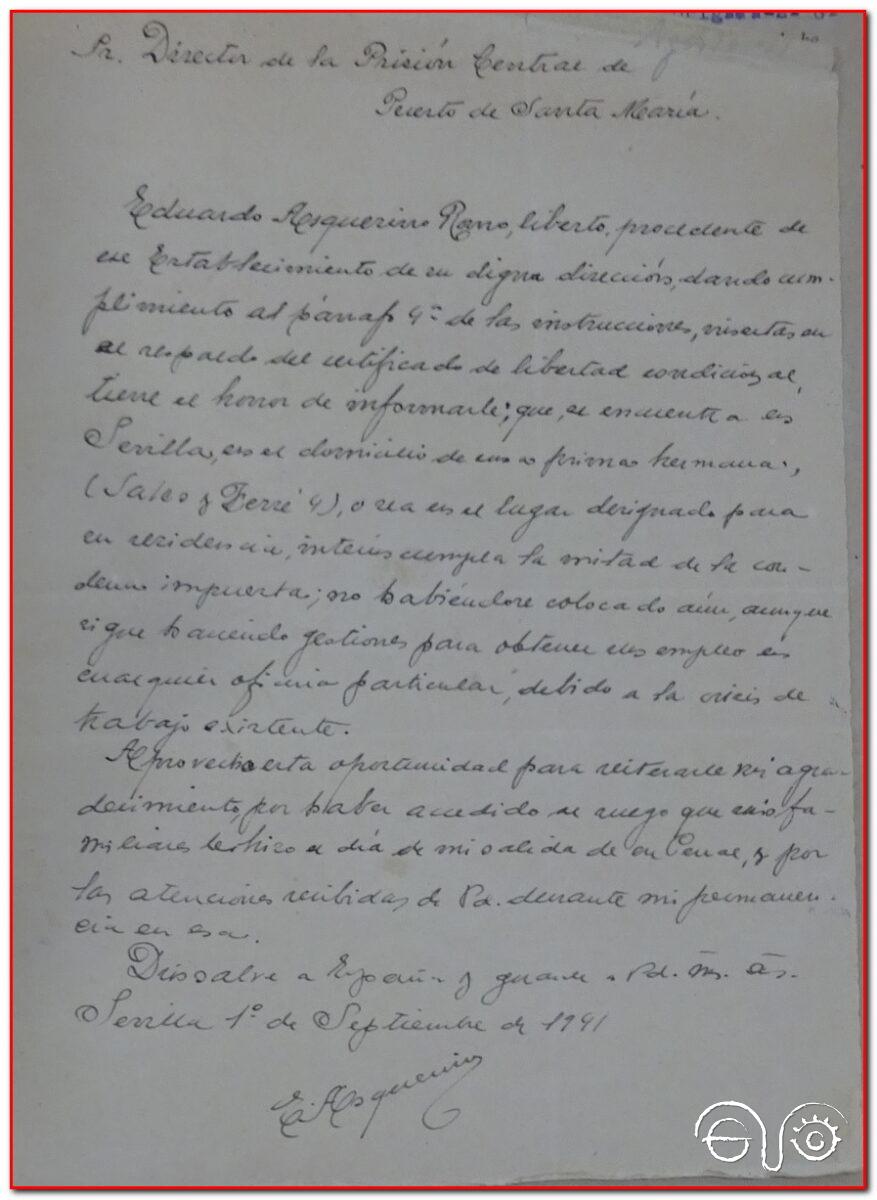 Sr. Director de la Prisión Central de
Puerto de Santa María.
Eduardo Asquerino Romo, liberto, procedente de
ese Establecimiento de su digna dirección, dando cum-
plimiento al párrafo 4º de las instrucciones, insertas en
el respaldo del certificado de libertad condicional,
tiene el honor de informarle; que, se encuentra en
Sevilla, en el domicilio de su prima hermana,
(Sales y Ferré 4), o sea en el lugar designado para
su residencia, interin cumpla la mitad de la con-
dena impuesta; no habiéndose colocado aún, aunque
sigue haciendo gestiones para obtener un empleo en
cualquier oficina particular, debido a la crisis de
trabajo existente.
Aprovecho esta oportunidad para reiterarle mi agra-
decimiento, por haber accedido al ruego que mis fa-
miliares le hizo el día de mi salida de ese Penal, y por
las atenciones recibidas de Vd. durante mi permanen-
cia en esa.
Dios salve a España y guarde a Vd. m. as.
Sevilla 1º de Septiembre de 1941
E. Asquerino